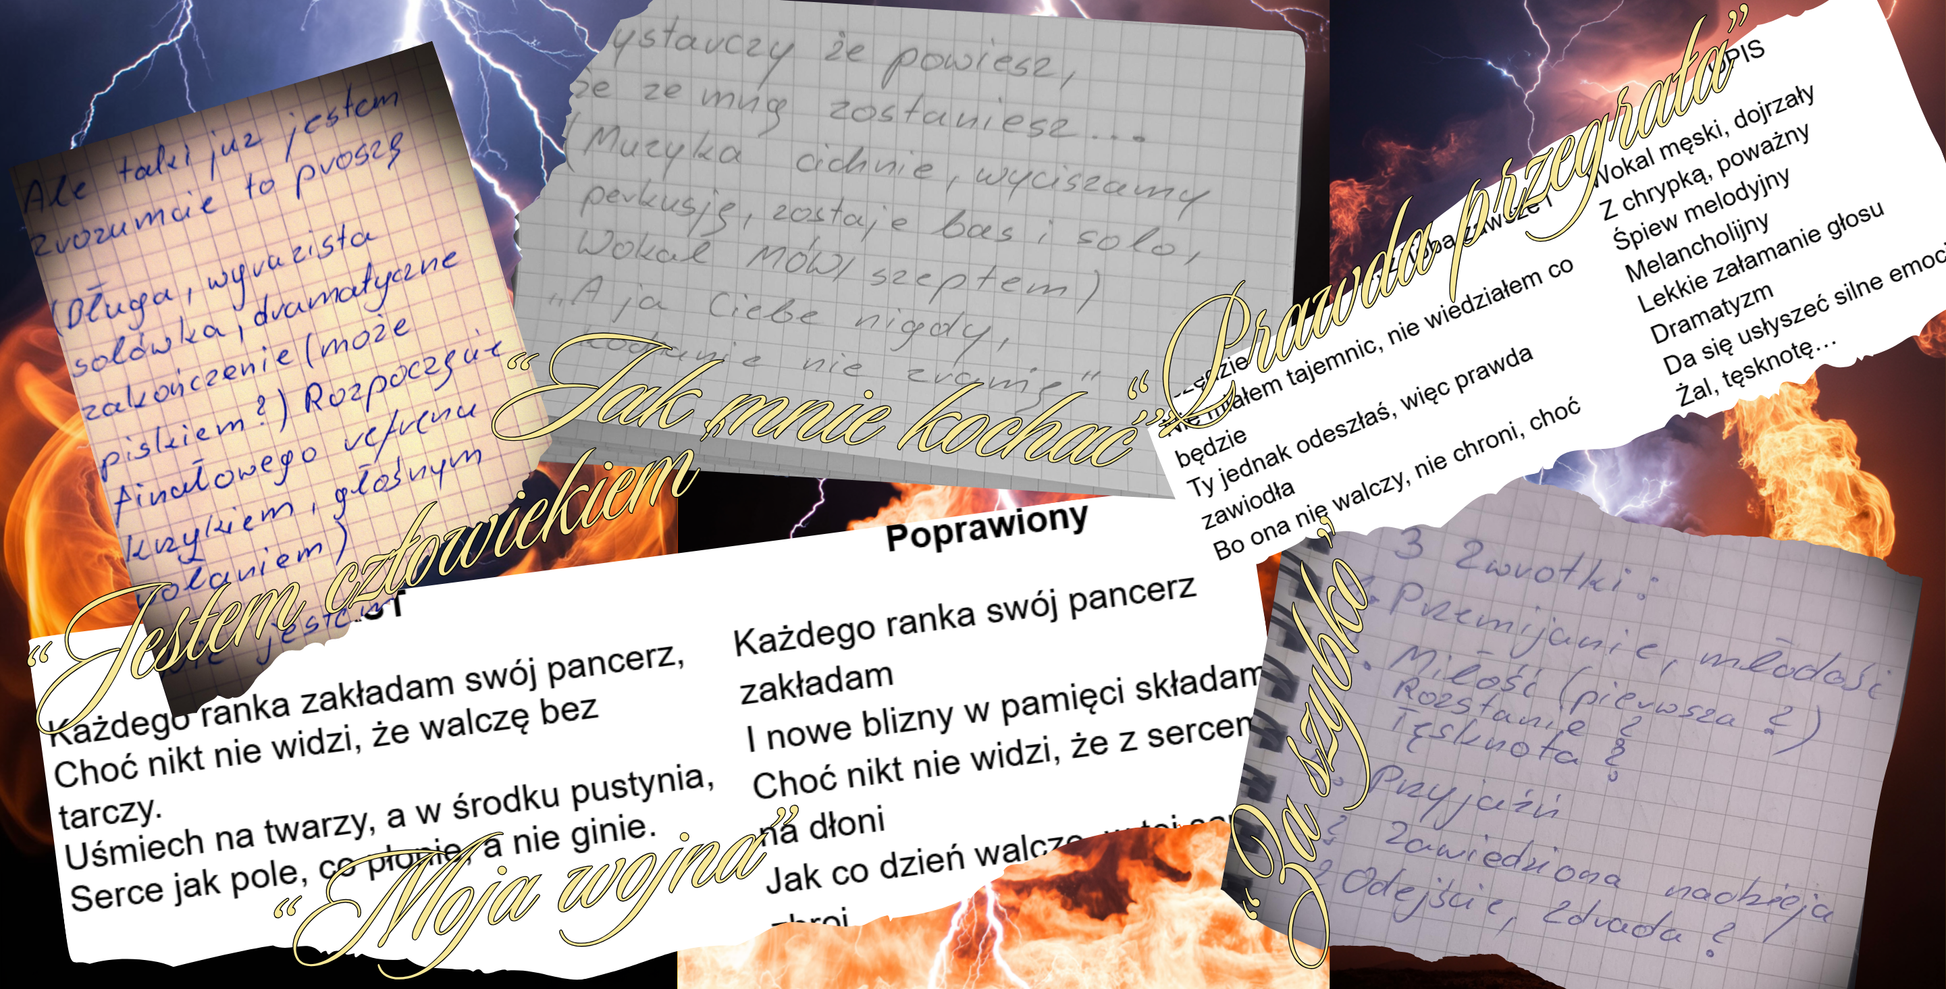 Ale taki już jestem
zrozumcie to proszę
(Długa, wyrazista
solówka, dramatyczne
zakończenie (może
piskiem?) Rozpoczęcie
finałowego refrenu
krzykiem, głośnym
wołaniem)
jestem
"Jestem człowiekiem"
ystarczy że powiesz,
że ze mną zostaniesz...
(Muzyka cichnie, wyciszamy
perkusję, zostaje bas i solo,
Wokal MÓWI szeptem)
"A ja Ciebie nigdy,
nie zranię"
"Jak mnie kochać"
"Prawda przegrała"
Nie miałem tajemnic, nie wiedziałem co
będzie
Ty jednak odeszłaś, więc prawda
zawiodła
Bo ona nie walczy, nie chroni, choć
OPIS
Wokal męski, dojrzały
Z chrypką, poważny
Śpiew melodyjny
Melancholijny
Lekkie załamanie głosu
Dramatyzm
Da się usłyszeć silne emoc
Żal, tęsknotę...
Każdego ranka zakładam swój pancerz,
Choć nikt nie widzi, że walczę bez
tarczy.
Uśmiech na twarzy, a w środku pustynia,
Serce jak pole, co płonie, a nie ginie.
Poprawiony
Każdego ranka swój pancerz
zakładam
I nowe blizny w pamięci składam
Choć nikt nie widzi, że z sercem
na dłoni
Jak co dzień walczę, w tej sa
zbroi
"Moja wojna"
"Za szybko"
3 Zwrotki:
1. Przemijanie, młodość
Miłość (pierwsza ?)
Rozstanie ?
Tęsknota ?
Przyjaźń
? Zawiedziona nadzieja
? Odejście, Zdrada ?